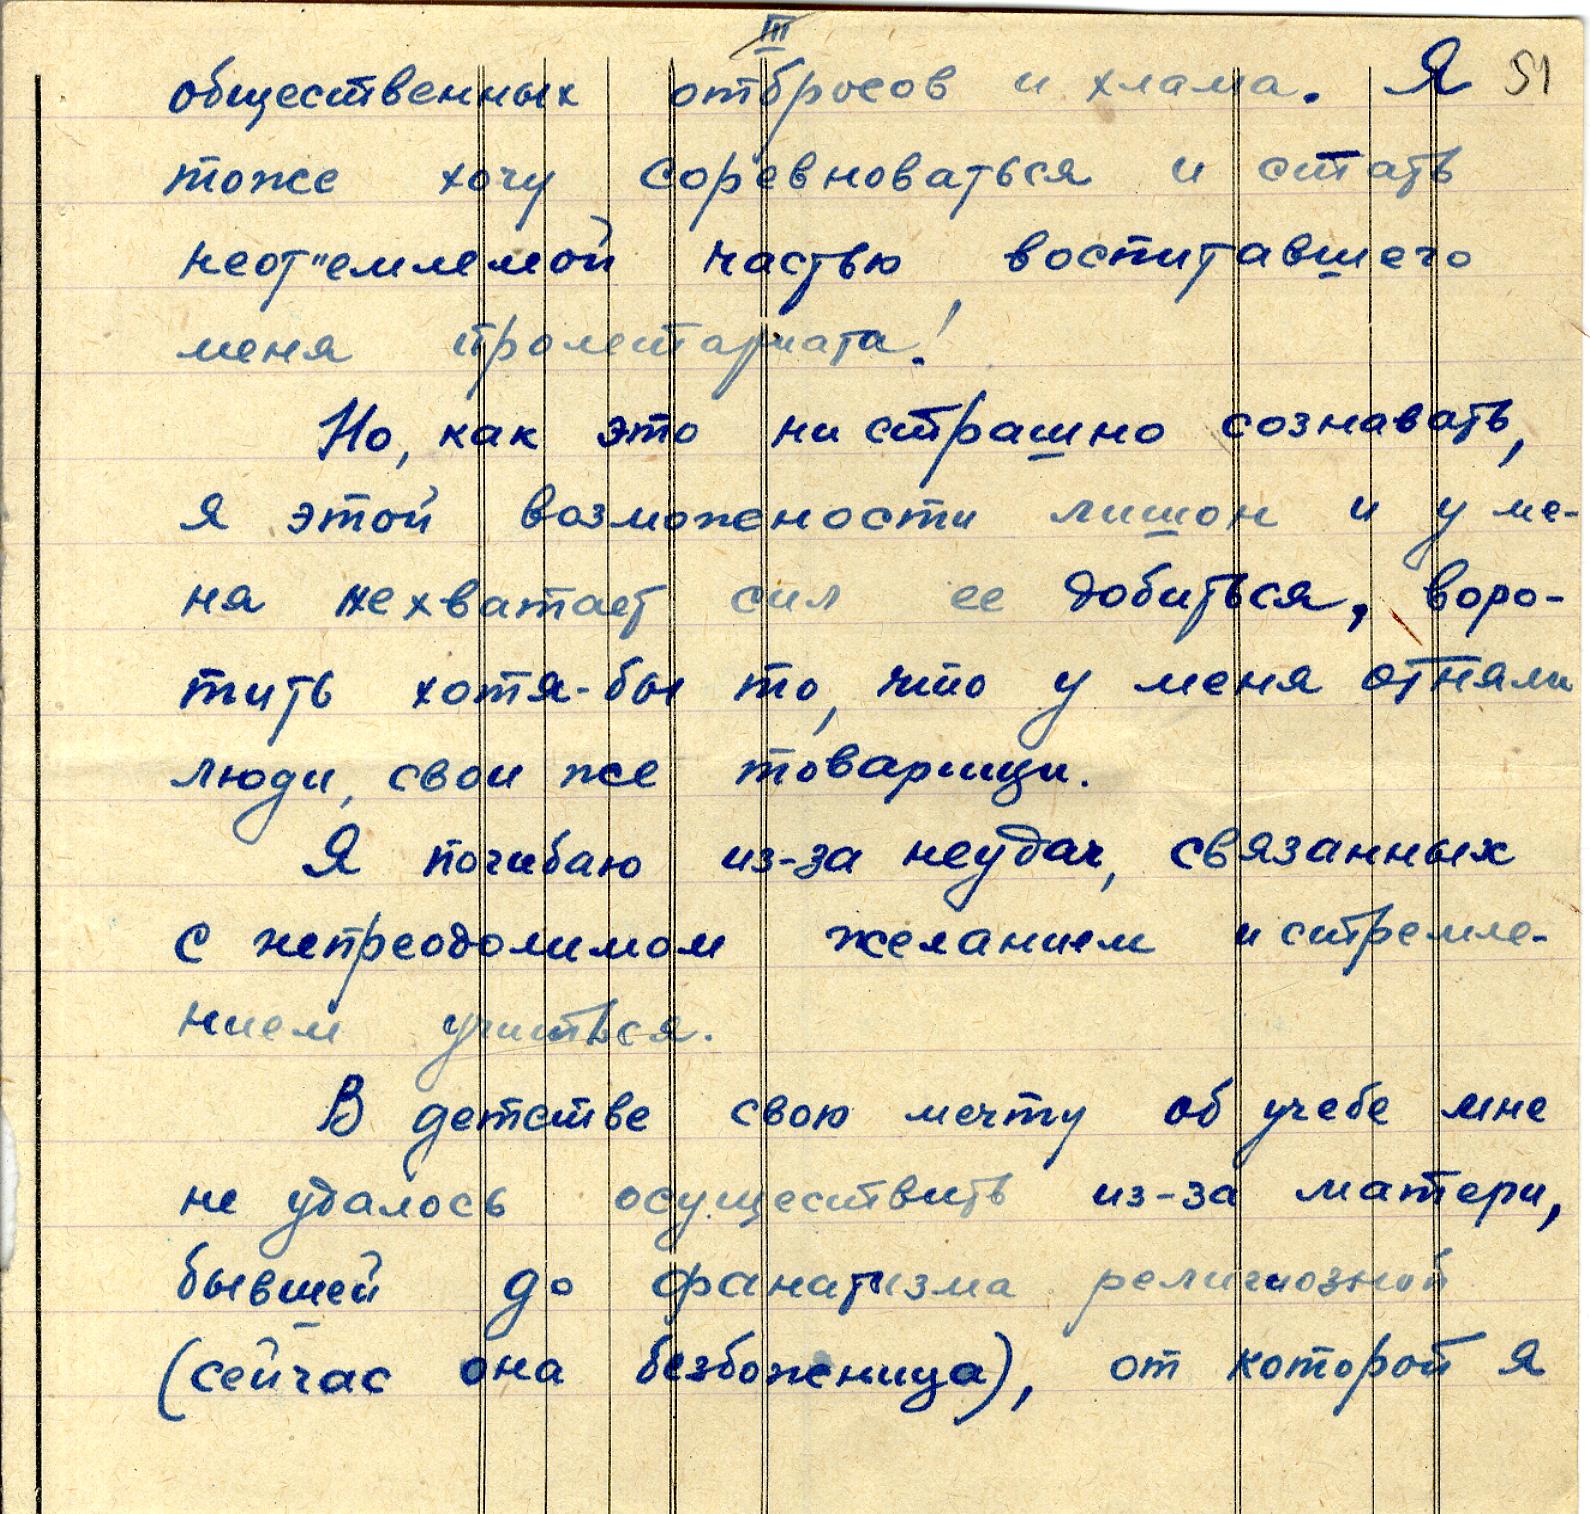 III
общественных отбросов и хлама. Я 51
тоже хочу соревноваться и стать
неот"емлемой частью воспитавшего
меня пролетариата!
Но, как это ни страшно сознавать,
я этой возможности лишон и у ме-
ня нехватает сил ее добиться, воро-
тить хотя-бы то, что у меня отняли
люди, свои же товарищи.
Я погибаю из-за неудач, связанных
с непреодолимом желанием и стремле-
нием учиться.
В детстве свою мечту об учебе мне
не удалось осуществить из-за матери,
бывшей до фанатизма религиозной
(сейчас она безбоженица), от которой я